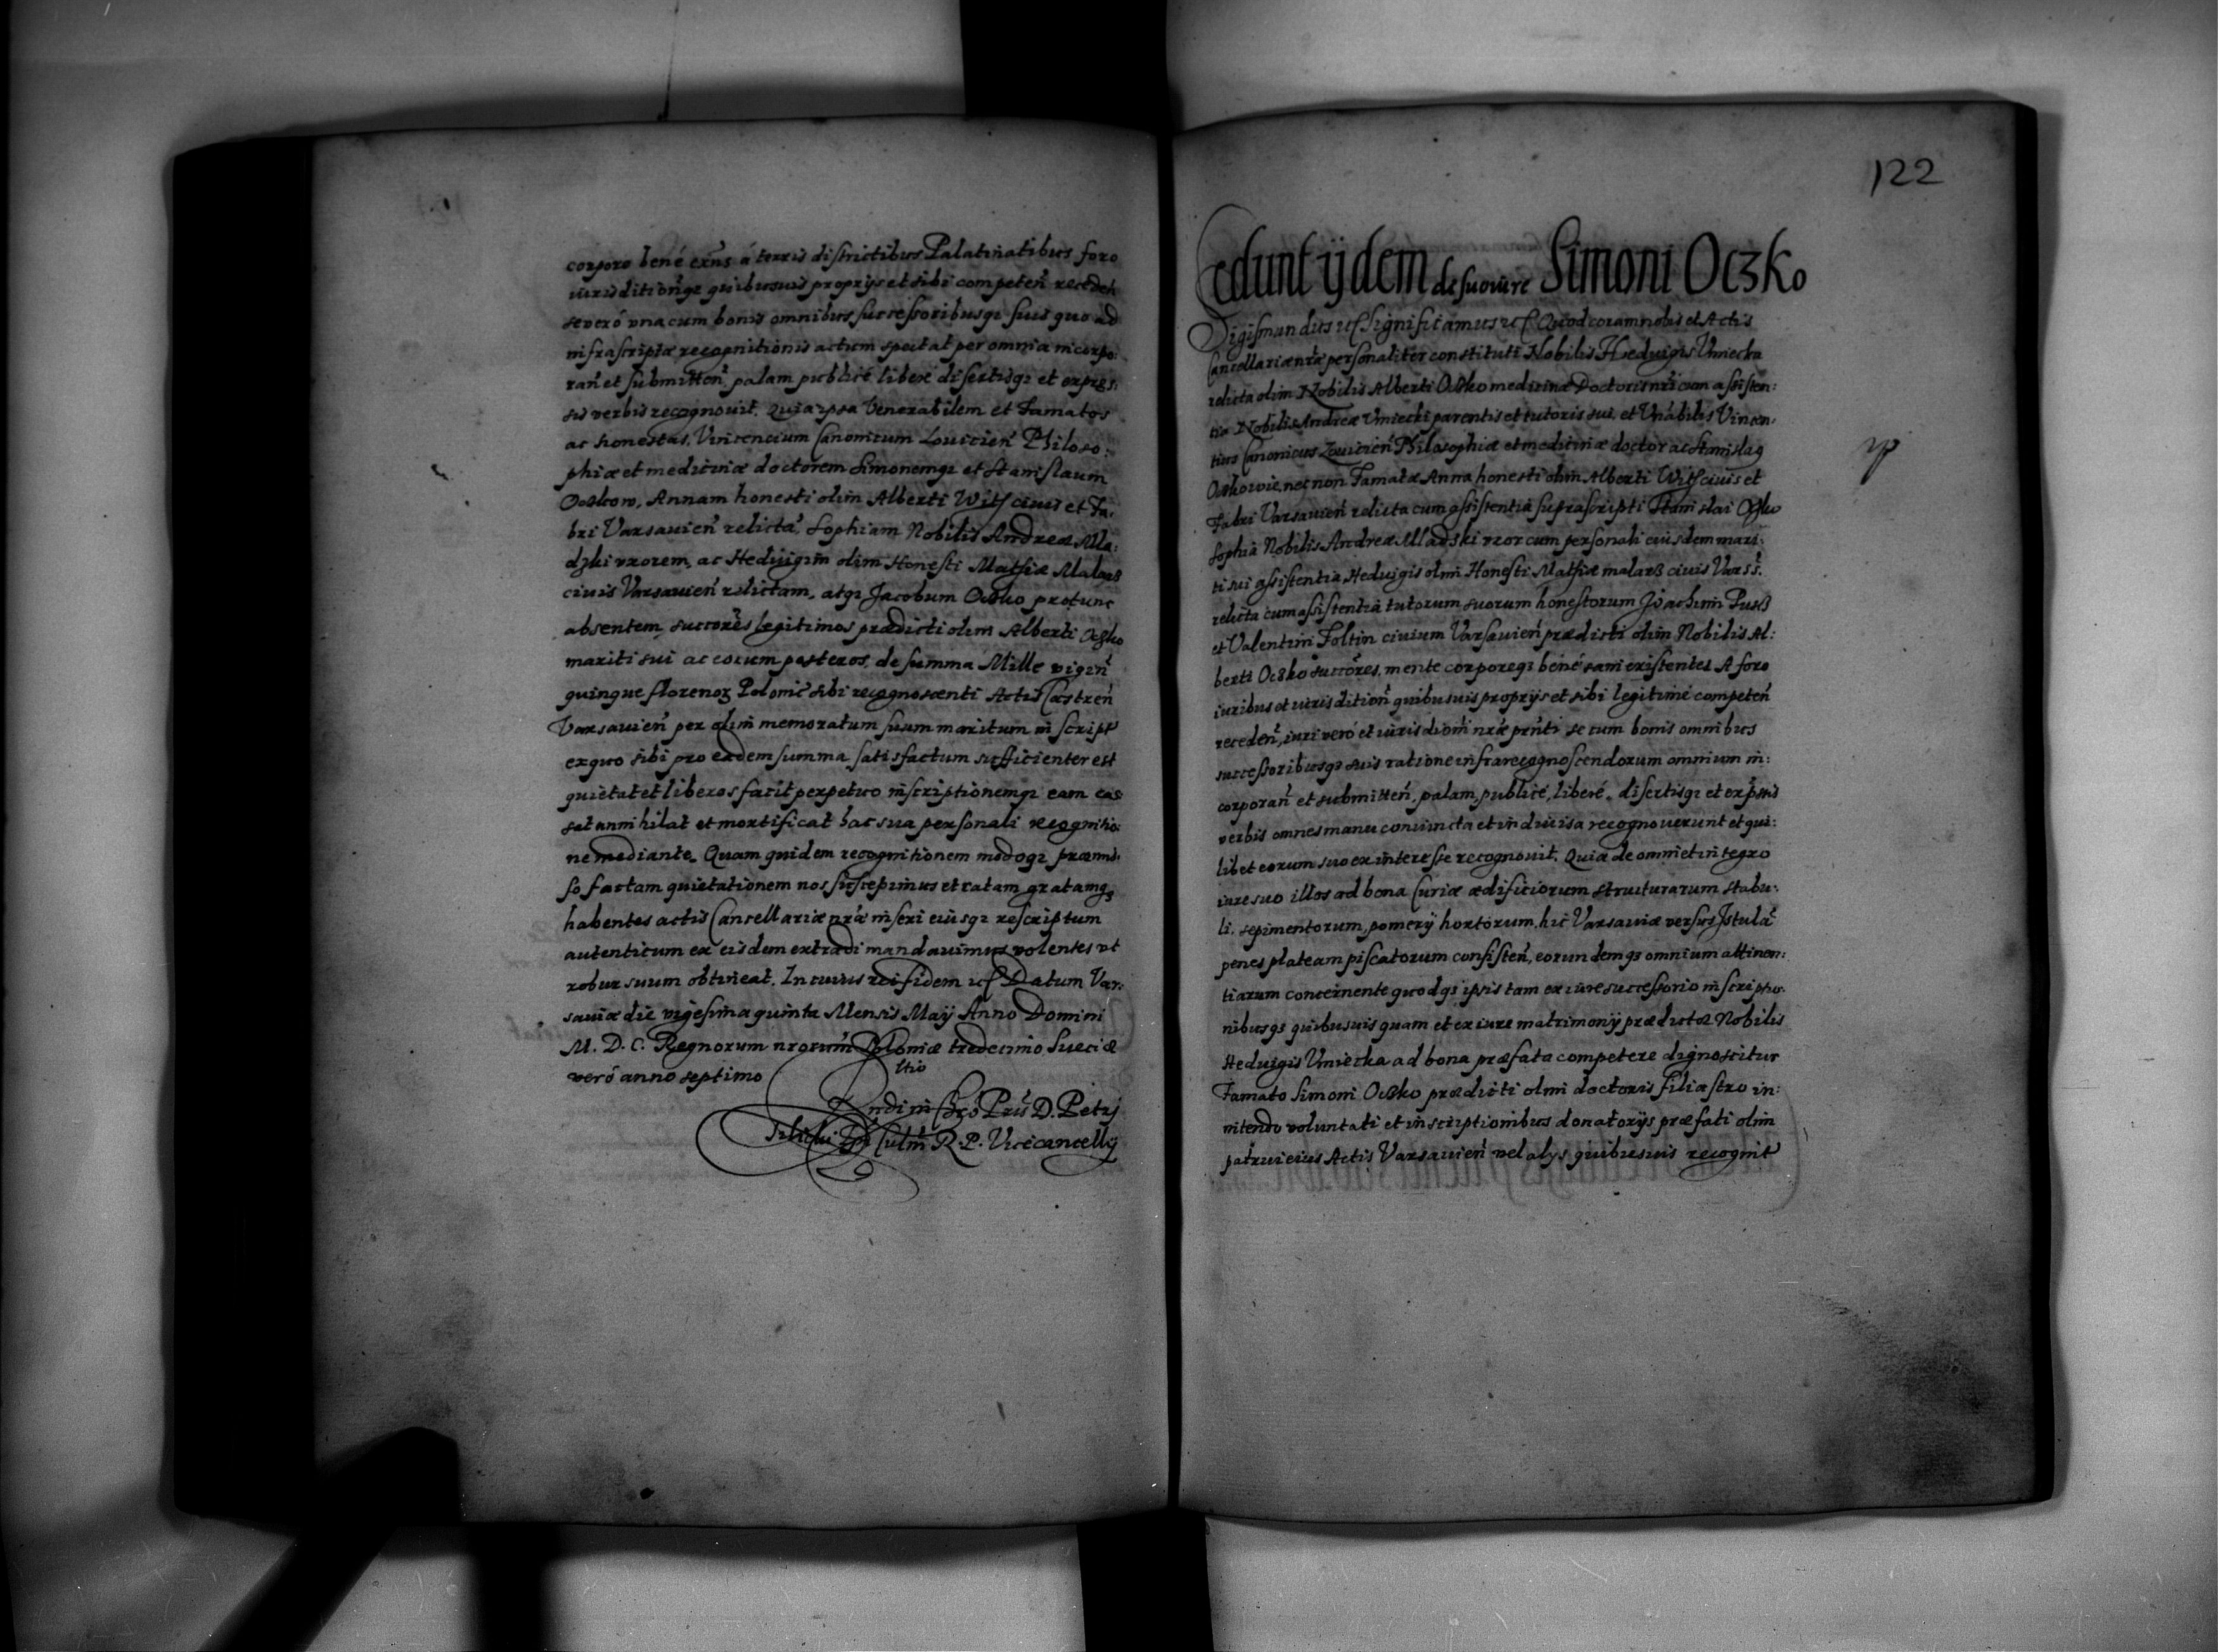 corpore bené exñs á terris districtibus Palatinatibus foro
iurisditionẽqȝ quibusuis proprys et sibi competeñ recedeñ
se veró vna cum bonis omnibus successoribusqȝ suis quo ad
infrascriptæ recognitionis actum spectat per omnia incorpo:
rañ et submitteñ, palam publicé liberé disertisqȝ et expres:
sis verbis recognouit. Quia ipsa Venerabilem et Famatos
ac honestas, Vincencium Canonicum Louicieñ Philoso:
phiæ et medicinæ doctorem Simonemqȝ et Stanislaum
Oczkow, Annam honesti olim Alberti Wits ciuis et Fa:
bri Varsauieñ relictã, Sophiam Nobilis Andreæ Mla:
dzki vxorem, ac Heduigim olim Honesti Mathiæ Malarz
ciuis Varsauieñ relictam, atqȝ Jacobum Oczko protunc
absentem, succorẽs legitimos prædicti olim Alberti Oczko
mariti sui ac eorum posteros, de summa Mille vigeñ
quinque florenoȝ Polonic̃ sibi recognoscenti Actis Castreñ
Varsauieñ per olim memoratum suum maritum inscript
ex quo sibi pro eadem summa satisfactum sufficienter est
quietat et liberos facit perpetuo inscriptionemqȝ eam cas:
sat annihilat et mortificat hac sua personali recognitio:
ne mediante. Quam quidem recognitionem modoqȝ præmis:
so factam quietationem nos suscepimus et ratam gratamqȝ
habentes actis Cancellariæ nr̃æ inseri eiusqȝ rescriptum
autenticum ex eisdem extradi mandauimus volentes vt
robur suum obtineat. In cuius rei fidem ꝛc Datum Var:
sauiæ die vigesima quinta Mensis Maÿ Anno Domini
M. D. C. Regnorum nrorum Poloniæ tredecimo Sueciæ
veró anno septimo
ltio
Rndi in Chro Pris D. Petri
Tilicki Epi Culm̃ R. P. Vicecancellÿ
122
Cedunt ijdem de suo iure Simoni Oczko
Sigismundus ꝛc Significamus ꝛc Quod coram nobis et Actis
Cancellariæ nr̃æ personaliter constituti Nobilis Heduigis Vmiecka
relicta olim Nobilis Alberti Oczko medicinæ Doctoris nri cum assisten:
tia Nobilis Andreæ Vmiecki parentis et tutoris sui, et Vnabilis Vincen:
tius Canonicus Louicieñ Philosophiæ et medicinæ doctor ac Stanislaq
Oczkowie, nec non Famatæ Anna honesti olim Alberti Wits ciuis et
Fabri Varsauieñ relicta cum assistentia suprascripti Stanislai Oczko
Sophia Nobilis Andreæ Mladzki vxor cum personali eiusdem mari:
ti sui assistentia, Heduigis olim Honesti Mathiæ malarz ciuis Varss.
relicta cum assistentia tutorum suorum honestorum Joachim Pusz
et Valentini Foltin ciuium Varsauieñ prædicti olim Nobilis Al:
berti Oczko succores, mente corporeqȝ bené sani existentes A foro
iuribus et iurisdition̂ quibusuis proprÿs et sibi legitimé competeñ
recedeñ, iuri veró et iurisdiom̃ nrẽ prñti se cum bonis omnibus
successoribusqȝ suis ratione infrarecognoscendorum omnium in:
corporañ et submitteñ, palam, publicé, liberé, disertisqȝ et exp̃ssis
verbis omnes manu coniuncta et indiuisa recognouerunt et qui:
libet eorum suo ex interesse recognouit. Quia de omni et integro
iure suo illos ad bona Curiæ ædificiorum structurarum stabu:
li, sepimentorum, pomerÿ hortorum, hic Varsauiæ versus Istulã
penes plateam piscatorum consisteñ, eorundemqȝ omnium attinen:
tiarum concernente quodqȝ ipsis tam ex iure successorio inscriptio:
nibusqȝ quibusuis quam et ex iure matrimonÿ prædictæ Nobilis
Heduigis Vmiecka ad bona præfata competere dignoscitur
Famato Simoni Oczko prædicti olim doctoris filiastro in:
nitendo voluntati et inscriptionibus donatorÿs præfati olim
patrui eius Actis Varsauieñ vel alys quibusuis recognit